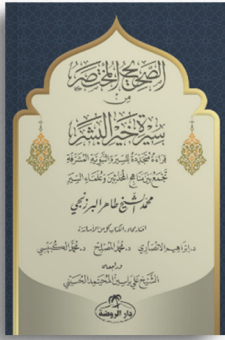 الصحيح المختصر
من
سيرة خير البشر
قراءة متجددة للسيرة النبوية المشرفة
تجمع بين مناهج المحدثين وعلماء السير
محمد الشيخ طاهر البرزنجي
د. إبراهيم الأنصاري د. محمد المصلح د. محمد الكبيسي
الشيخ علي ياسين المحيمد الحسيني
دار الروضة